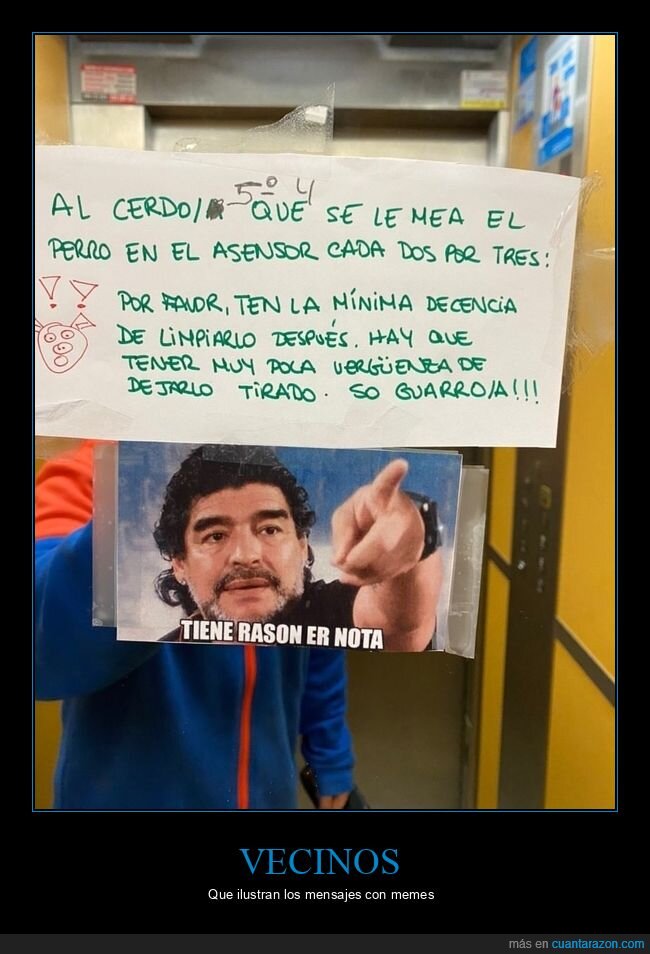 AL CERDO/ 5º 4 QUE SE LE MEA EL
PERRO EN EL ASENSOR CADA DOS POR TRES:
! !
POR FAVOR, TEN LA MÍNIMA DECENCIA
DE LIMPIARLO DESPUÉS. HAY QUE
TENER MUY POCA VERGÜENZA DE
DEJARLO TIRADO. SO GUARRO/A!!!
TIENE RASON ER NOTA
VECINOS
Que ilustran los mensajes con memes
más en cuantarazon.com